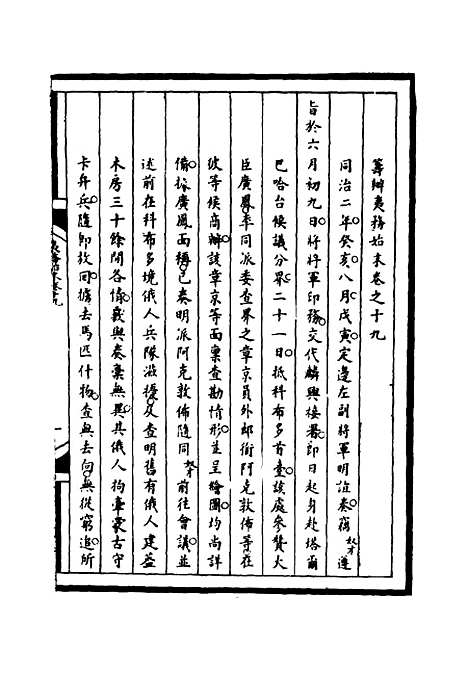 籌辦夷務始末卷之十九
同治二年癸亥八月戊寅定邊左副將軍明誼奏竊奴才遵
旨於六月初九日將將軍印務交代麟興接署即日起身赴塔爾
巴哈台候議分界二十一日抵科布多首臺該處參贊大
臣廣鳳率同派委查界之章京員外郎銜阿克敦佈等在
彼等候商辦該章京等面稟查勘情形並呈繪圖均尚詳
備據廣鳳面稱已奏明派阿克敦佈隨同奴才前往會議並
述前在科布多境俄人兵隊滋擾及查明舊有俄人建蓋
木房三十餘間各條載與奏稟無異其俄人拘牽蒙古守
卡弁兵隨即放回擄去馬匹什物查無去向無從窮追所